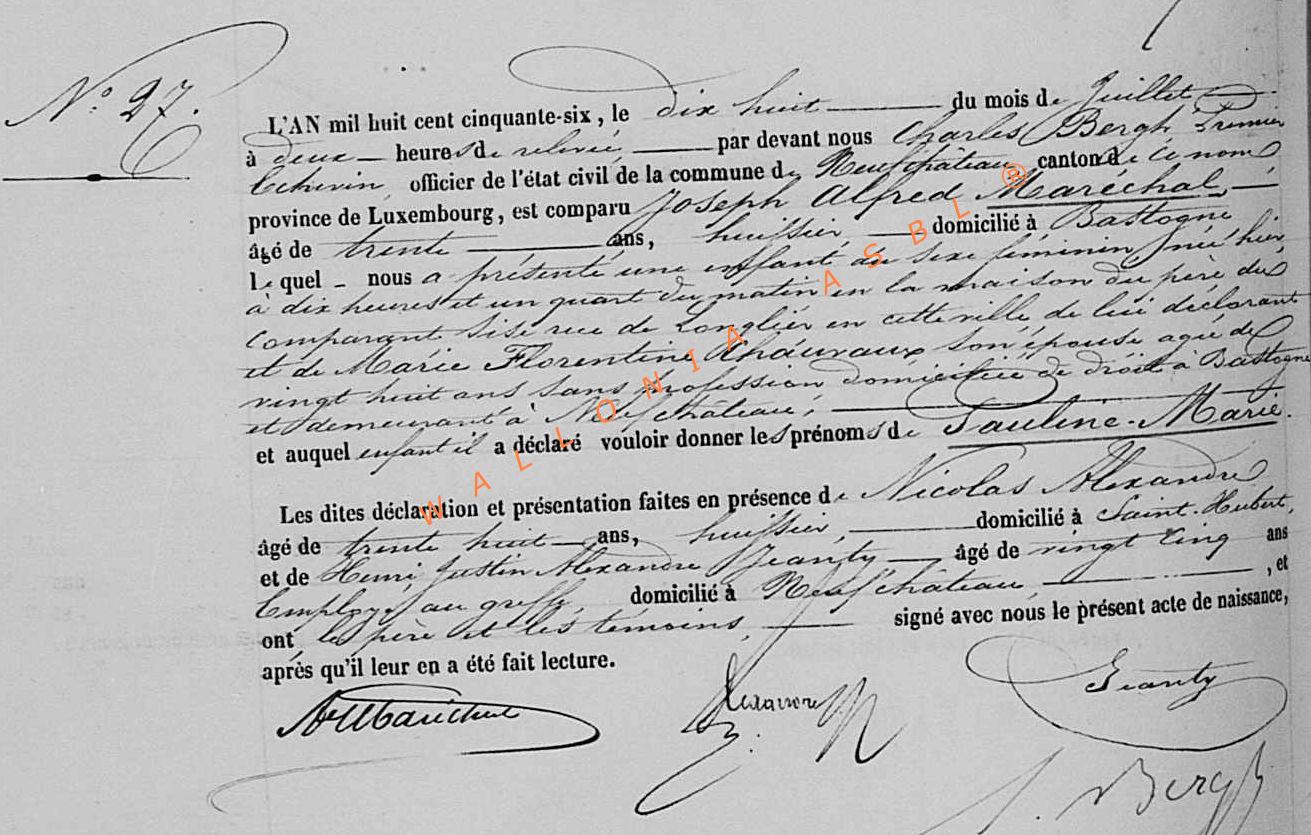 N° 27.
L'AN mil huit cent cinquante-six, le dix huit du mois de Juillet
à deux heures de relevée, par devant nous Charles Bergh Premier
Echevin, officier de l'état civil de la commune de Neufchâteau, canton de ce nom
province de Luxembourg, est comparu Joseph Alfred Maréchal,
âgé de trente ans, huissier, domicilié à Bastogne
lequel nous a présenté une enfant du sexe féminin, née hier
à dix heures et un quart du matin en la maison du père du
comparant sise rue de Longlier en cette ville de lui déclarant
et de Marie Florentine Chauvaux son épouse agée de
vingt huit ans sans profession domiciliée de droit à Bastogne
et demeurant à Neufchâteau,
et auquel enfant il a déclaré vouloir donner les prénoms de Pauline-Marie.
Les dites déclaration et présentation faites en présence de Nicolas Alexandre
âgé de trente huit ans, huissier, domicilié à Saint-Hubert,
et de Henri Justin Alexandre Jeanty âgé de vingt cinq ans
Employé au greffe, domicilié à Neufchâteau, et
ont le père et les témoins, signé avec nous le présent acte de naissance,
après qu'il leur en a été fait lecture.
AMaréchal
Alexandre
Jeanty
Bergh
WALLONIA ASBL ®